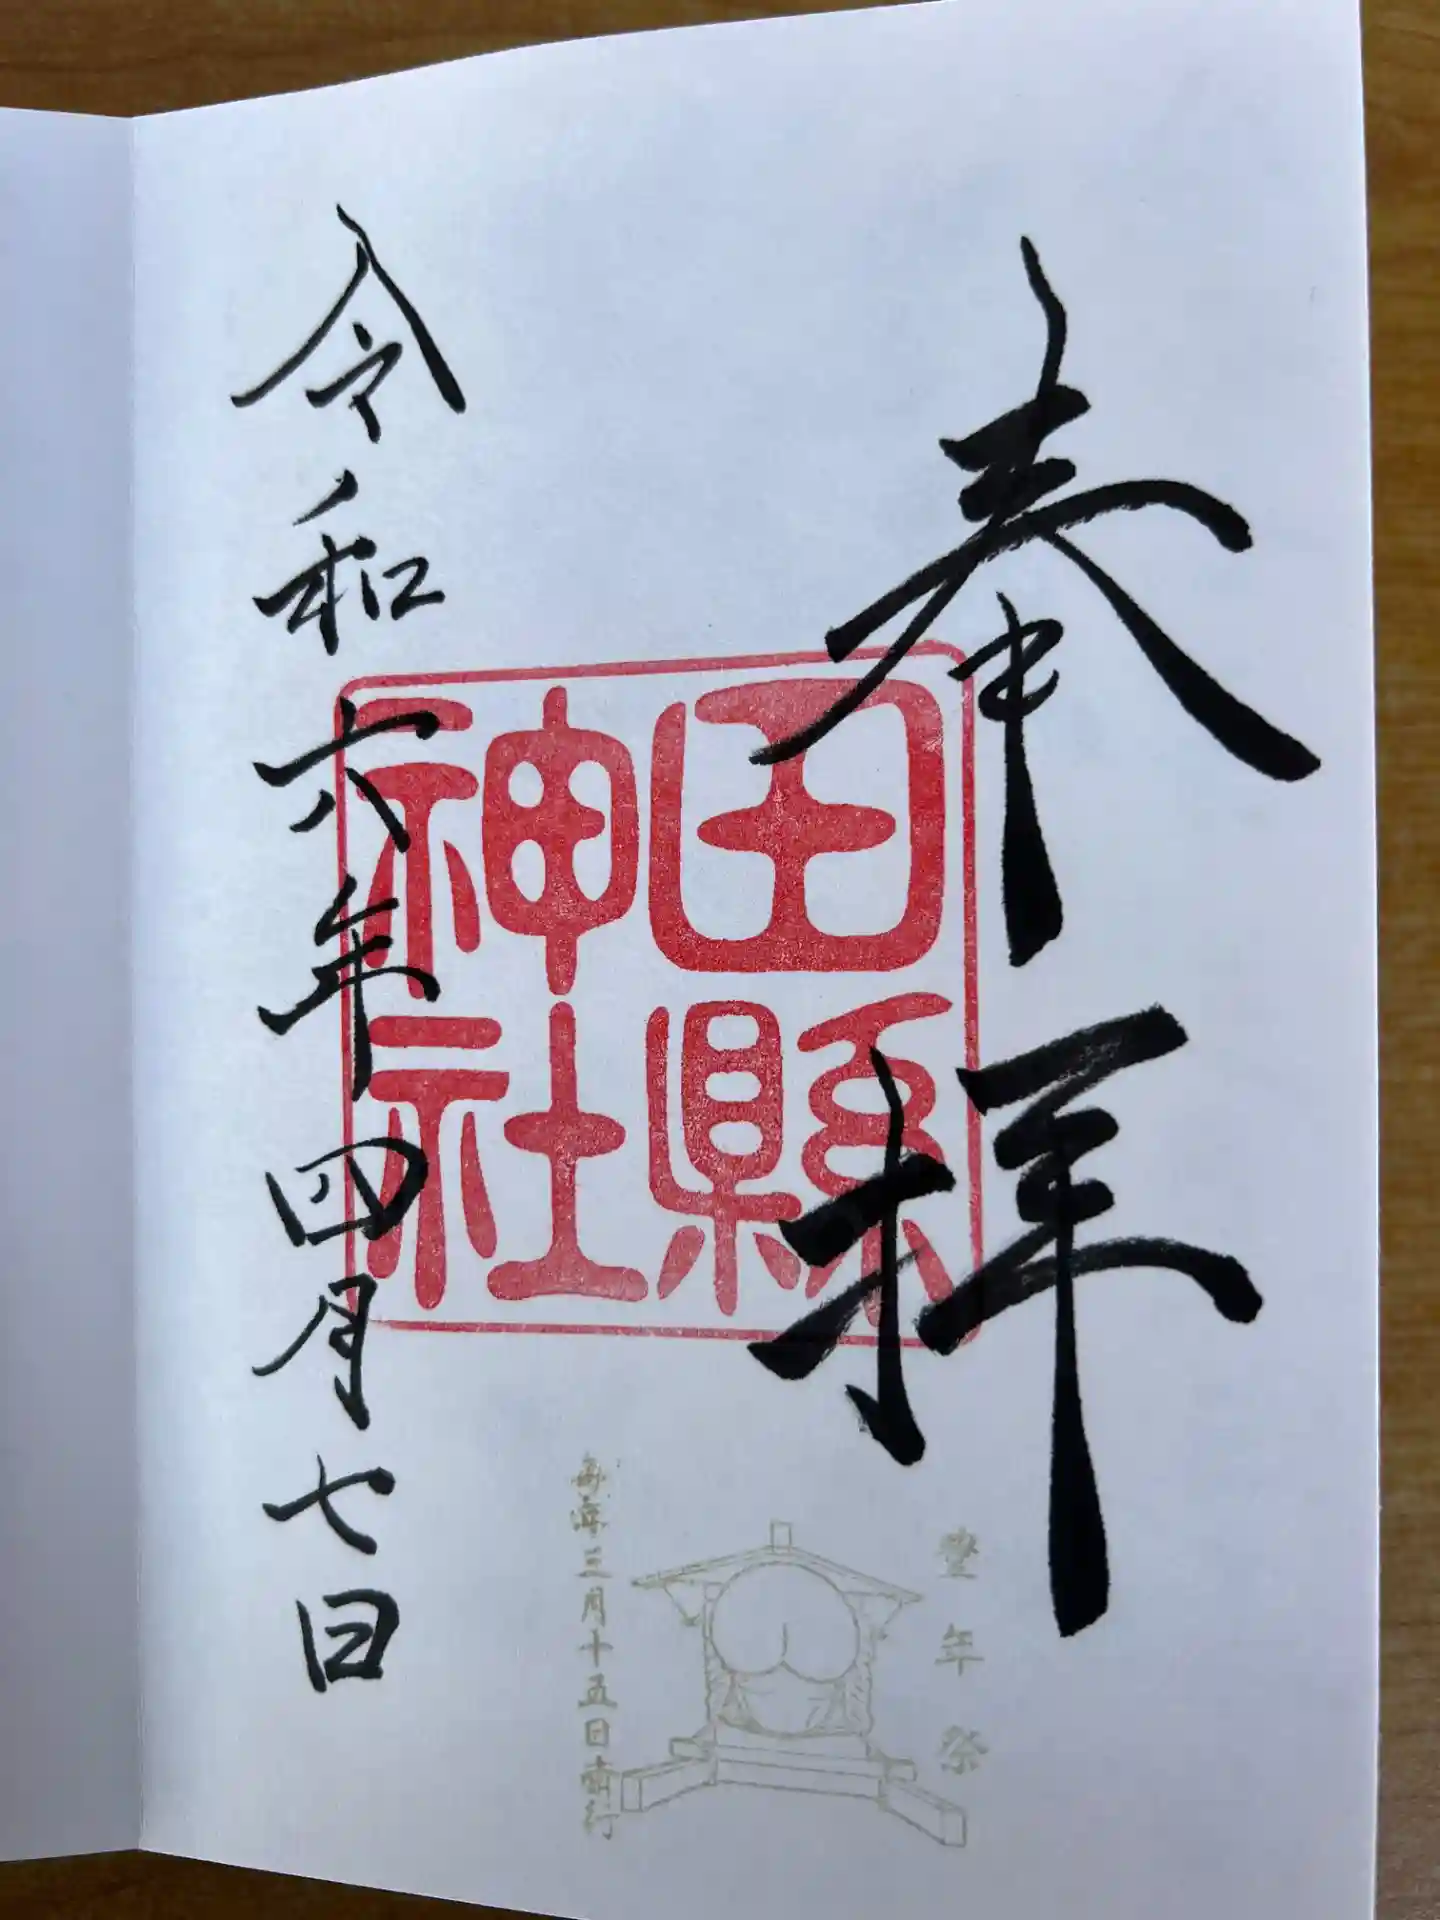 奉拝
田縣
神社
令和六年四月七日
豊年祭
毎年三月十五日斎行